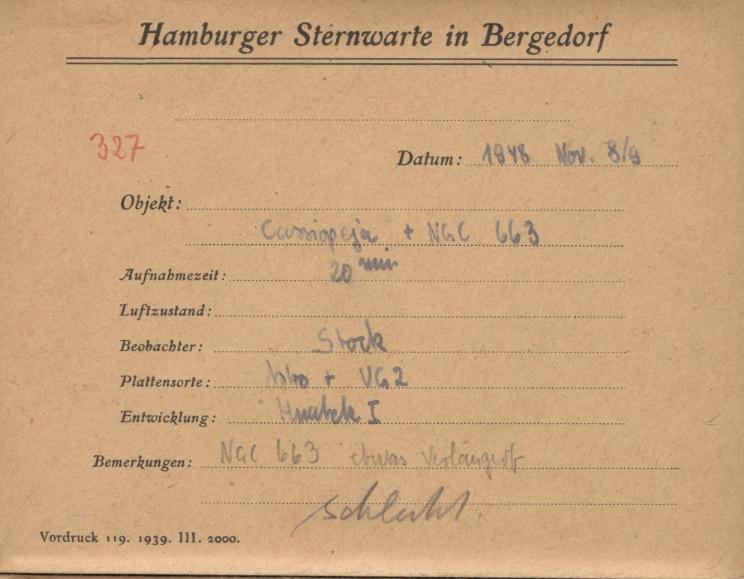 Hamburger Sternwarte in Bergedorf
327
Datum: 1948 Nov. 8/9
Objekt:
Cassiopeja + NGC 663
Aufnahmezeit: 20 min
Luftzustand:
Beobachter: Stock
Plattensorte: + VG2
Entwicklung: I
Bemerkungen: NGC 663 etwas verlängert
schlecht.
Vordruck 119. 1939. III. 2000.